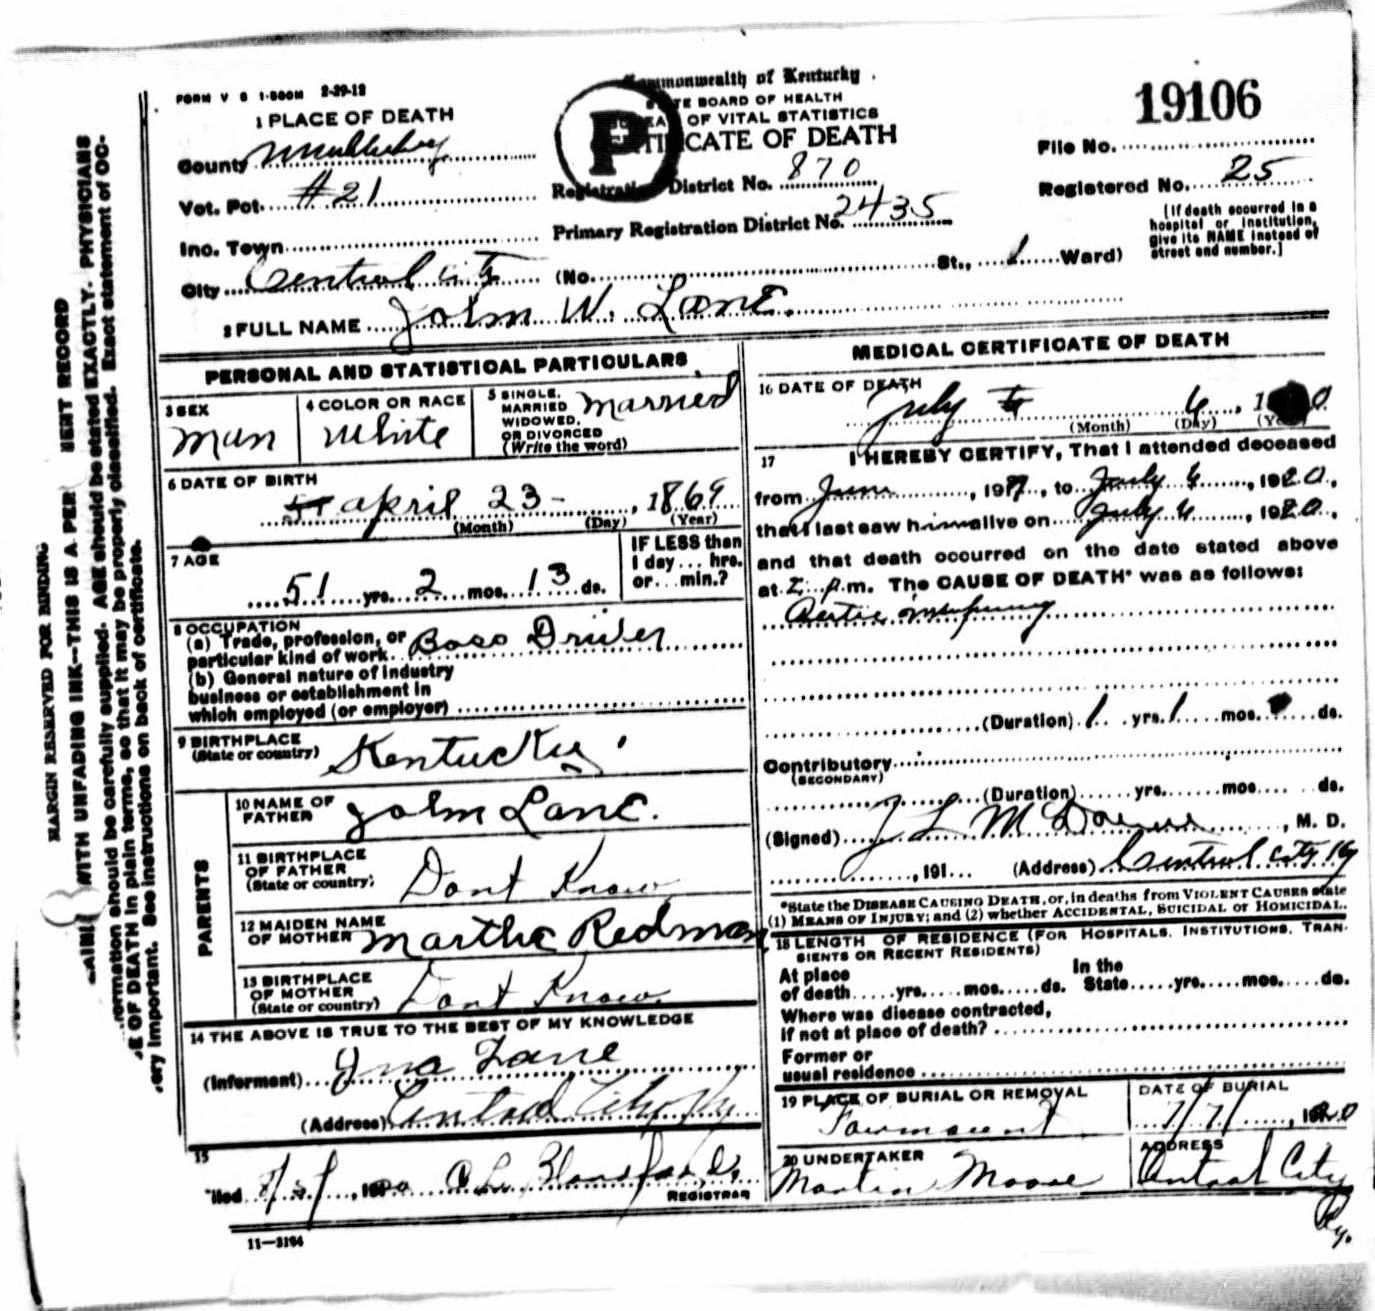 FORM V S 1-500M 2-29-12
Commonwealth of Kentucky
STATE BOARD OF HEALTH
OF VITAL STATISTICS
CERTIFICATE OF DEATH
P
19106
1 PLACE OF DEATH
County
Vot. Pot. #21
Inc. Town
City Central City (No. St., 1 Ward)
Registration District No. 870
Primary Registration District No. 2435
File No.
Registered No. 25
[If death occurred in a
hospital or institution,
give its NAME instead of
street and number.]
2 FULL NAME John W. Lane.
PERSONAL AND STATISTICAL PARTICULARS
3 SEX
man
4 COLOR OR RACE
White
5 SINGLE,
MARRIED
WIDOWED,
OR DIVORCED
(Write the word)
married
6 DATE OF BIRTH
April 23 - , 1869
(Month) (Day) (Year)
7 AGE
51 yrs. 2 mos. 13 ds.
IF LESS than
1 day ... hrs.
or ... min.?
8 OCCUPATION
(a) Trade, profession, or
particular kind of work Boss Driver
(b) General nature of industry
business or establishment in
which employed (or employer)
9 BIRTHPLACE
(State or country) Kentucky
PARENTS
10 NAME OF
FATHER John Lane.
11 BIRTHPLACE
OF FATHER
(State or country) Dont Know
12 MAIDEN NAME
OF MOTHER Martha Redman
13 BIRTHPLACE
OF MOTHER
(State or country) Dont Know
14 THE ABOVE IS TRUE TO THE BEST OF MY KNOWLEDGE
(Informant) Lane
(Address) Central City Ky
15
Filed
REGISTRAR
11-3194
MEDICAL CERTIFICATE OF DEATH
16 DATE OF DEATH
July 6, 1920
(Month) (Day) (Year)
17 I HEREBY CERTIFY, That I attended deceased
from June , 191 , to July 6, 1920,
that I last saw him alive on July 6, 1920,
and that death occurred on the date stated above
at m. The CAUSE OF DEATH* was as follows:
(Duration) 1 yrs. 1 mos. ds.
Contributory
(SECONDARY)
(Duration) yrs. mos. ds.
(Signed) J L , M. D.
, 191 (Address) Central City Ky
*State the DISEASE CAUSING DEATH, or, in deaths from VIOLENT CAUSES state
(1) MEANS OF INJURY; and (2) whether ACCIDENTAL, SUICIDAL or HOMICIDAL.
18 LENGTH OF RESIDENCE (FOR HOSPITALS, INSTITUTIONS, TRAN-
SIENTS OR RECENT RESIDENTS)
At place
of death yrs. mos. ds.
In the
State yrs. mos. ds.
Where was disease contracted,
if not at place of death?
Former or
usual residence
19 PLACE OF BURIAL OR REMOVAL
DATE OF BURIAL
7/7/ , 1920
20 UNDERTAKER
Martin Moore
ADDRESS
Central City
Ky.
MARGIN RESERVED FOR BINDING
WITH UNFADING INK—THIS IS A PER NENT RECORD
ormation should be carefully supplied. AGE should be stated EXACTLY. PHYSICIANS
E OF DEATH in plain terms, so that it may be properly classified. Exact statement of OC-
ery important. See instructions on back of certificate.